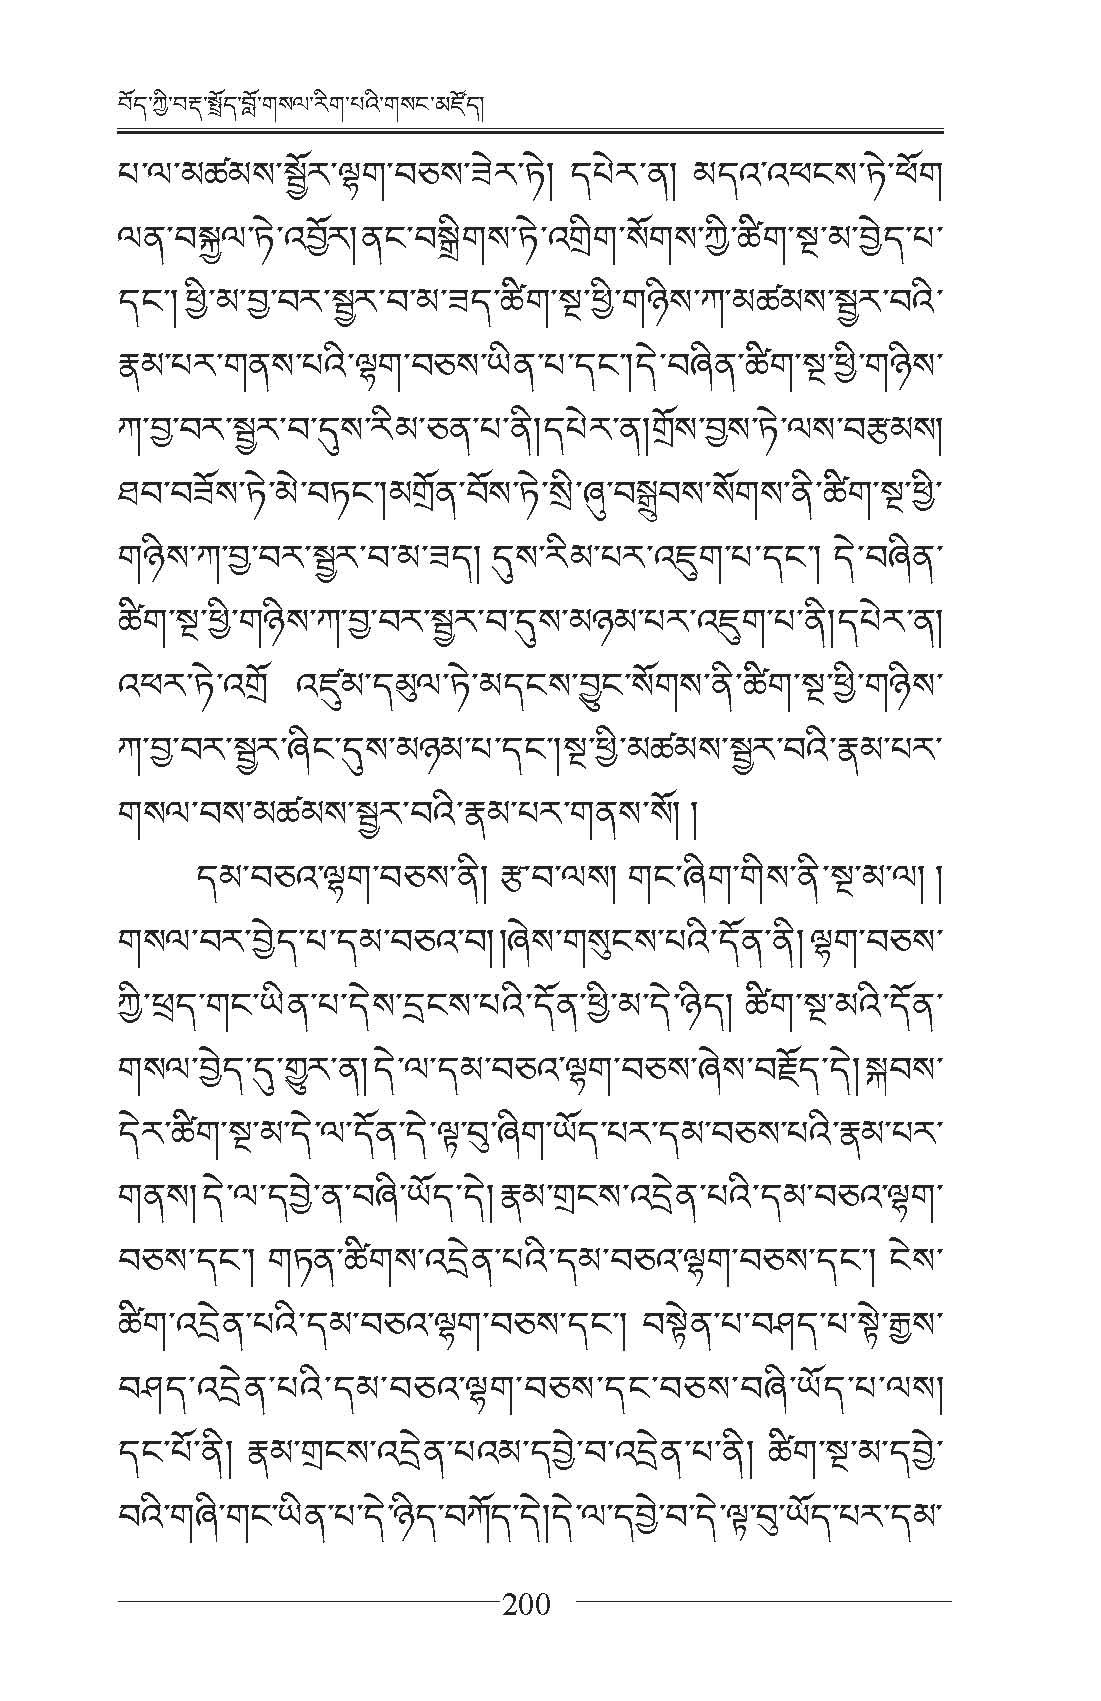 བོད་ཀྱི་བརྡ་སྤྲོད་བློ་གསལ་རིག་པའི་གསང་མཛོད།
པ་ལ་མཚམས་སྦྱོར་ལྷག་བཅས་ཟེར་ཏེ། དཔེར་ན། མདའ་འཕངས་ཏེ་ཕོག
ལན་བསྐྱལ་ཏེ་འབྱོར། ནང་བསྒྲིགས་ཏེ་འགྲིག་སོགས་ཀྱི་ཚིག་སྔ་མ་བྱེད་པ་
དང་། ཕྱི་མ་བྱ་བར་སྦྱར་བ་མ་ཟད་ཚིག་སྔ་ཕྱི་གཉིས་ཀ་མཚམས་སྦྱར་བའི་
རྣམ་པར་གནས་པའི་ལྷག་བཅས་ཡིན་པ་དང་། དེ་བཞིན་ཚིག་སྔ་ཕྱི་གཉིས་
ཀ་བྱ་བར་སྦྱར་བ་དུས་རིམ་ཅན་པ་ནི། དཔེར་ན། གྲོས་བྱས་ཏེ་ལས་བརྩམས།
ཐབ་བཟོས་ཏེ་མེ་བཏང་། མགྲོན་བོས་ཏེ་སྲི་ཞུ་བསྒྲུབས་སོགས་ནི་ཚིག་སྔ་ཕྱི་
གཉིས་ཀ་བྱ་བར་སྦྱར་བ་མ་ཟད། དུས་རིམ་པར་འཇུག་པ་དང་། དེ་བཞིན་
ཚིག་སྔ་ཕྱི་གཉིས་ཀ་བྱ་བར་སྦྱར་བ་དུས་མཉམ་པར་འཇུག་པ་ནི། དཔེར་ན།
འཕར་ཏེ་འགྲོ འཛུམ་དམུལ་ཏེ་མདངས་བྱུང་སོགས་ནི་ཚིག་སྔ་ཕྱི་གཉིས་
ཀ་བྱ་བར་སྦྱར་ཞིང་དུས་མཉམ་པ་དང་། སྔ་ཕྱི་མཚམས་སྦྱར་བའི་རྣམ་པར་
གསལ་བས་མཚམས་སྦྱར་བའི་རྣམ་པར་གནས་སོ། །
དམ་བཅའ་ལྷག་བཅས་ནི། རྩ་བ་ལས། གང་ཞིག་གིས་ནི་སྔ་མ་ལ། །
གསལ་བར་བྱེད་པ་དམ་བཅའ་བ། །ཞེས་གསུངས་པའི་དོན་ནི། ལྷག་བཅས་
ཀྱི་ཕྲད་གང་ཡིན་པ་དེས་དྲངས་པའི་དོན་ཕྱི་མ་དེ་ཉིད། ཚིག་སྔ་མའི་དོན་
གསལ་བྱེད་དུ་གྱུར་ན། དེ་ལ་དམ་བཅའ་ལྷག་བཅས་ཞེས་བརྗོད་དེ། སྐབས་
དེར་ཚིག་སྔ་མ་དེ་ལ་དོན་དེ་ལྟ་བུ་ཞིག་ཡོད་པར་དམ་བཅས་པའི་རྣམ་པར་
གནས། དེ་ལ་དབྱེ་ན་བཞི་ཡོད་དེ། རྣམ་གྲངས་འདྲེན་པའི་དམ་བཅའ་ལྷག་
བཅས་དང་། གཏན་ཚིགས་འདྲེན་པའི་དམ་བཅའ་ལྷག་བཅས་དང་། ངེས་
ཚིག་འདྲེན་པའི་དམ་བཅའ་ལྷག་བཅས་དང་། བསྟེན་པ་བཤད་པ་སྟེ་རྒྱས་
བཤད་འདྲེན་པའི་དམ་བཅའ་ལྷག་བཅས་དང་བཅས་བཞི་ཡོད་པ་ལས།
དང་པོ་ནི། རྣམ་གྲངས་འདྲེན་པའམ་དབྱེ་བ་འདྲེན་པ་ནི། ཚིག་སྔ་མ་དབྱེ་
བའི་གཞི་གང་ཡིན་པ་དེ་ཉིད་བཀོད་དེ། དེ་ལ་དབྱེ་བ་དེ་ལྟ་བུ་ཡོད་པར་དམ་
200